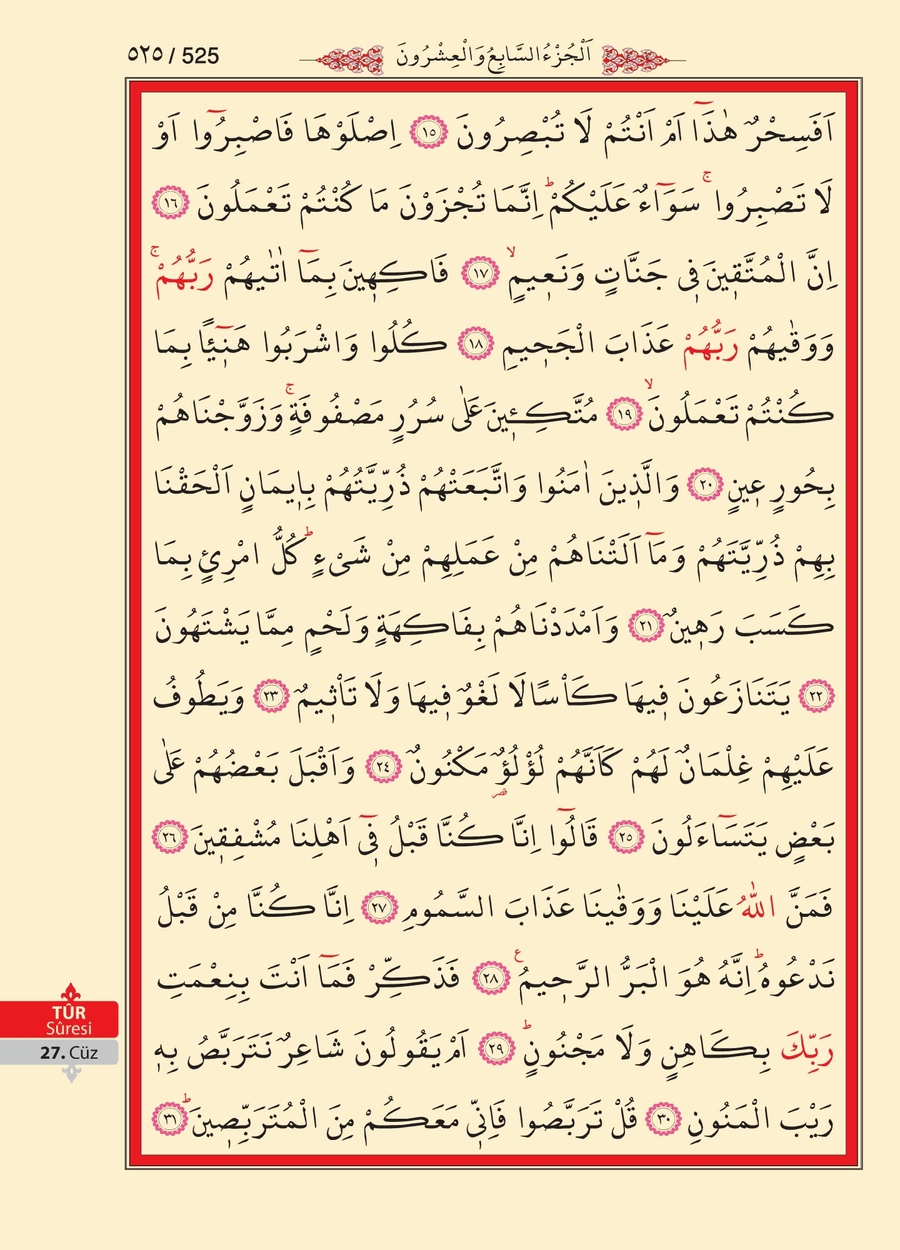 ٥٢٥ / 525
اَلْجُزْءُ السَّابِعُ وَالْعِشْرُونَ
اَفَسِحْرٌ هٰذَٓا اَمْ اَنْتُمْ لَا تُبْصِرُونَ ﴿١٥﴾ اِصْلَوْهَا فَاصْبِرُٓوا اَوْ
لَا تَصْبِرُواۚ سَوَٓاءٌ عَلَيْكُمْؕ اِنَّمَا تُجْزَوْنَ مَا كُنْتُمْ تَعْمَلُونَ ﴿١٦﴾
اِنَّ الْمُتَّق۪ينَ ف۪ى جَنَّاتٍ وَنَع۪يمٍۙ ﴿١٧﴾ فَاكِه۪ينَ بِمَٓا اٰتٰيهُمْ رَبُّهُمْۚ
وَوَقٰيهُمْ رَبُّهُمْ عَذَابَ الْجَح۪يمِ ﴿١٨﴾ كُلُوا وَاشْرَبُوا هَن۪ٓيـًٔا بِمَا
كُنْتُمْ تَعْمَلُونَۙ ﴿١٩﴾ مُتَّكِـ۪ٔينَ عَلٰى سُرُرٍ مَصْفُوفَةٍۚ وَزَوَّجْنَاهُمْ
بِحُورٍ ع۪ينٍ ﴿٢٠﴾ وَالَّذ۪ينَ اٰمَنُوا وَاتَّبَعَتْهُمْ ذُرِّيَّتُهُمْ بِا۪يمَانٍ اَلْحَقْنَا
بِهِمْ ذُرِّيَّتَهُمْ وَمَٓا اَلَتْنَاهُمْ مِنْ عَمَلِهِمْ مِنْ شَىْءٍؕ كُلُّ امْرِئٍ بِمَا
كَسَبَ رَه۪ينٌ ﴿٢١﴾ وَاَمْدَدْنَاهُمْ بِفَاكِهَةٍ وَلَحْمٍ مِمَّا يَشْتَهُونَ
﴿٢٢﴾ يَتَنَازَعُونَ ف۪يهَا كَاْسًا لَا لَغْوٌ ف۪يهَا وَلَا تَاْث۪يمٌ ﴿٢٣﴾ وَيَطُوفُ
عَلَيْهِمْ غِلْمَانٌ لَهُمْ كَاَنَّهُمْ لُؤْلُؤٌ مَكْنُونٌ ﴿٢٤﴾ وَاَقْبَلَ بَعْضُهُمْ عَلٰى
بَعْضٍ يَتَسَٓاءَلُونَ ﴿٢٥﴾ قَالُٓوا اِنَّا كُنَّا قَبْلُ ف۪ٓى اَهْلِنَا مُشْفِق۪ينَ ﴿٢٦﴾
فَمَنَّ اللّٰهُ عَلَيْنَا وَوَقٰينَا عَذَابَ السَّمُومِ ﴿٢٧﴾ اِنَّا كُنَّا مِنْ قَبْلُ
نَدْعُوهُؕ اِنَّهُ هُوَ الْبَرُّ الرَّح۪يمُ ع ﴿٢٨﴾ فَذَكِّرْ فَمَٓا اَنْتَ بِنِعْمَتِ
رَبِّكَ بِكَاهِنٍ وَلَا مَجْنُونٍؕ ﴿٢٩﴾ اَمْ يَقُولُونَ شَاعِرٌ نَتَرَبَّصُ بِه۪
رَيْبَ الْمَنُونِ ﴿٣٠﴾ قُلْ تَرَبَّصُوا فَاِنّ۪ى مَعَكُمْ مِنَ الْمُتَرَبِّص۪ينَؕ ﴿٣١﴾
TÛR
Sûresi
27. Cüz